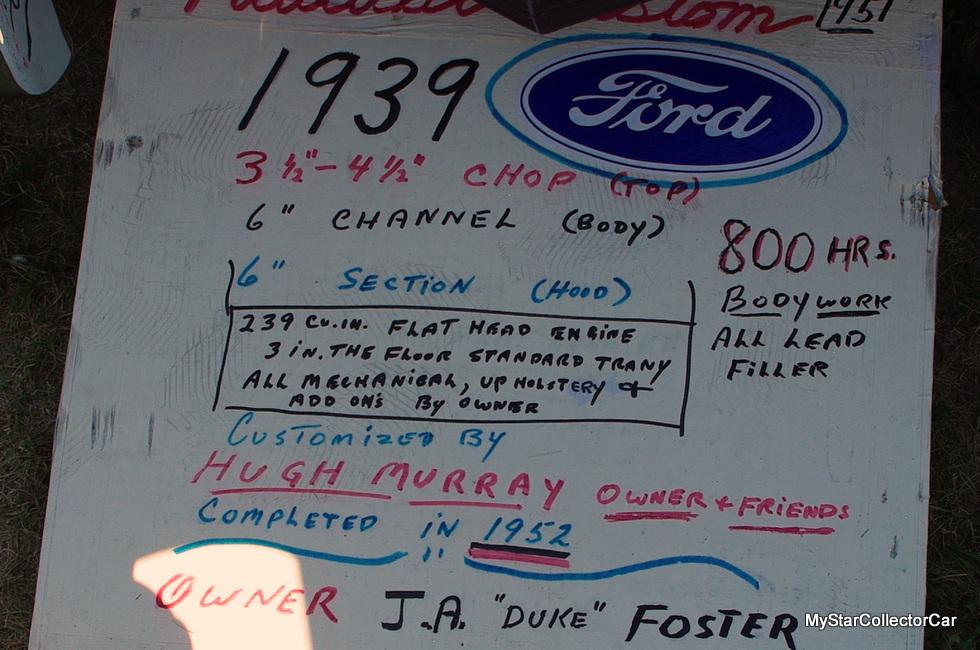 Custom 1951
1939 Ford
3 ½" - 4 ½" CHOP (TOP)
6" CHANNEL (BODY)
800 HRS.
BODYWORK
ALL LEAD
FILLER
6" SECTION (HOOD)
239 CU.IN. FLAT HEAD ENGINE
3 IN. THE FLOOR STANDARD TRANY
ALL MECHANICAL, UPHOLSTERY &
ADD ON'S BY OWNER
CUSTOMIZED BY
HUGH MURRAY OWNER & FRIENDS
COMPLETED IN 1952
OWNER J.A. "DUKE" FOSTER
MyStarCollectorCar